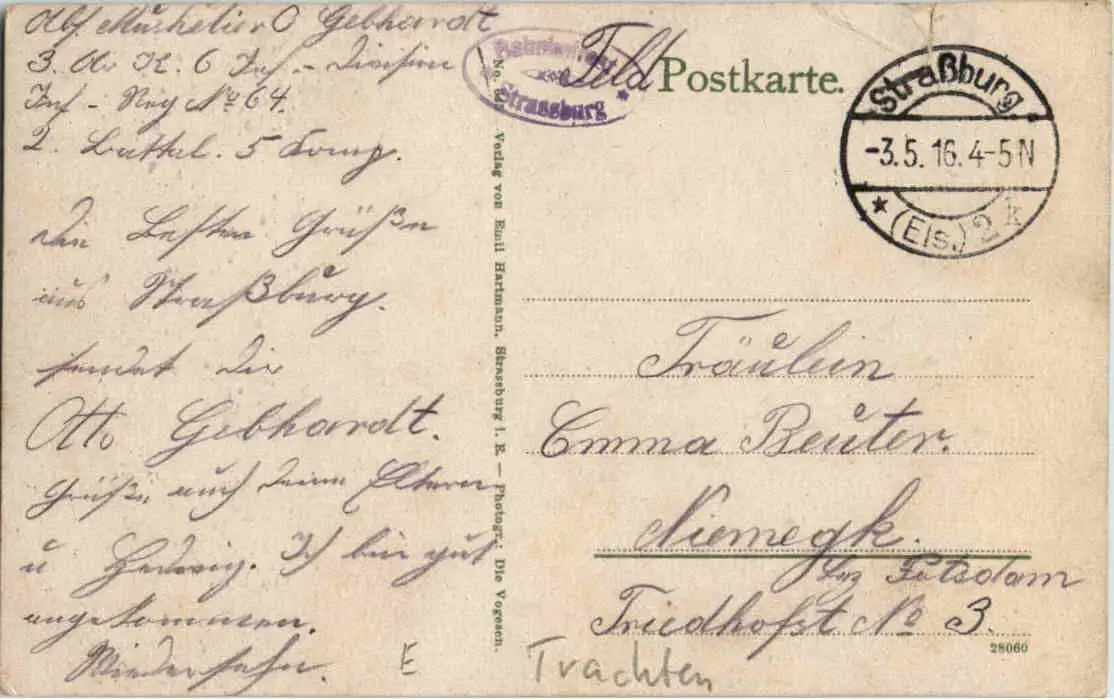 Abs. Musketier O Gebhardt
3. K. 6 Inf. - Division
Inf - Reg No 64.
2. Battal. 5 Komp.
Die Besten Grüße
aus Straßburg.
sendet Dir
Otto Gebhardt.
Grüße auch deine Eltern
u Hedwig. Ich bin gut
angekommen.
Wiedersehn.
E
Strassburg
Verlag von Emil Hartmann, Strassburg i. E. — Photogr.: Die Vogesen.
Feld Postkarte.
Straßburg
-3.5.16.4-5N
* (Els.) 2 k
Fräulein
Emma Reuter.
Niemegk.
Bez Potsdam
Friedhofst No 3.
28060
Trachten